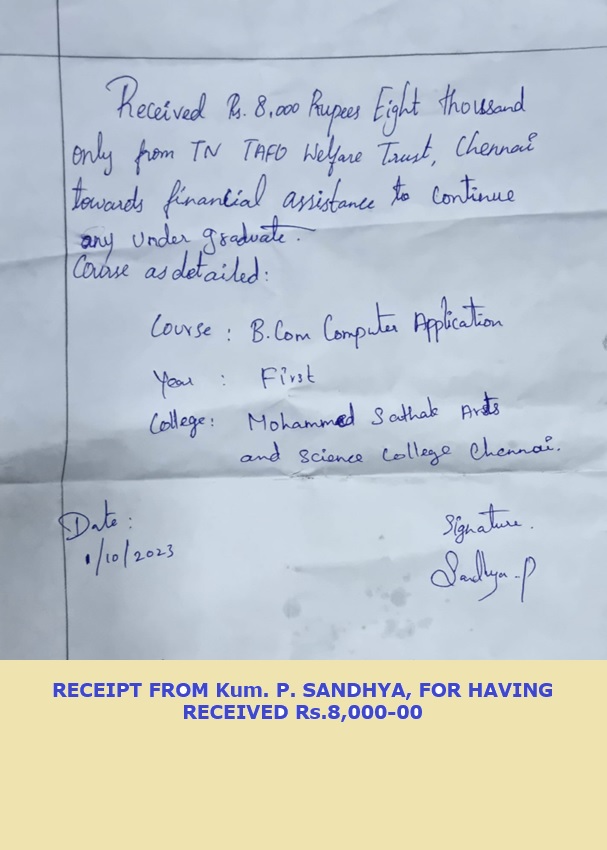 Received Rs. 8,000 Rupees Eight thousand
only from TN TAFO Welfare Trust, Chennai
towards financial assistance to continue
any under graduate.
Course as detailed:
Course : B.Com Computer Application
Year : First
College: Mohammed Sathak Arts
and Science College Chennai.
Date :
1/10/2023
Signature.
Sandhya-P
RECEIPT FROM Kum. P. SANDHYA, FOR HAVING
RECEIVED Rs.8,000-00